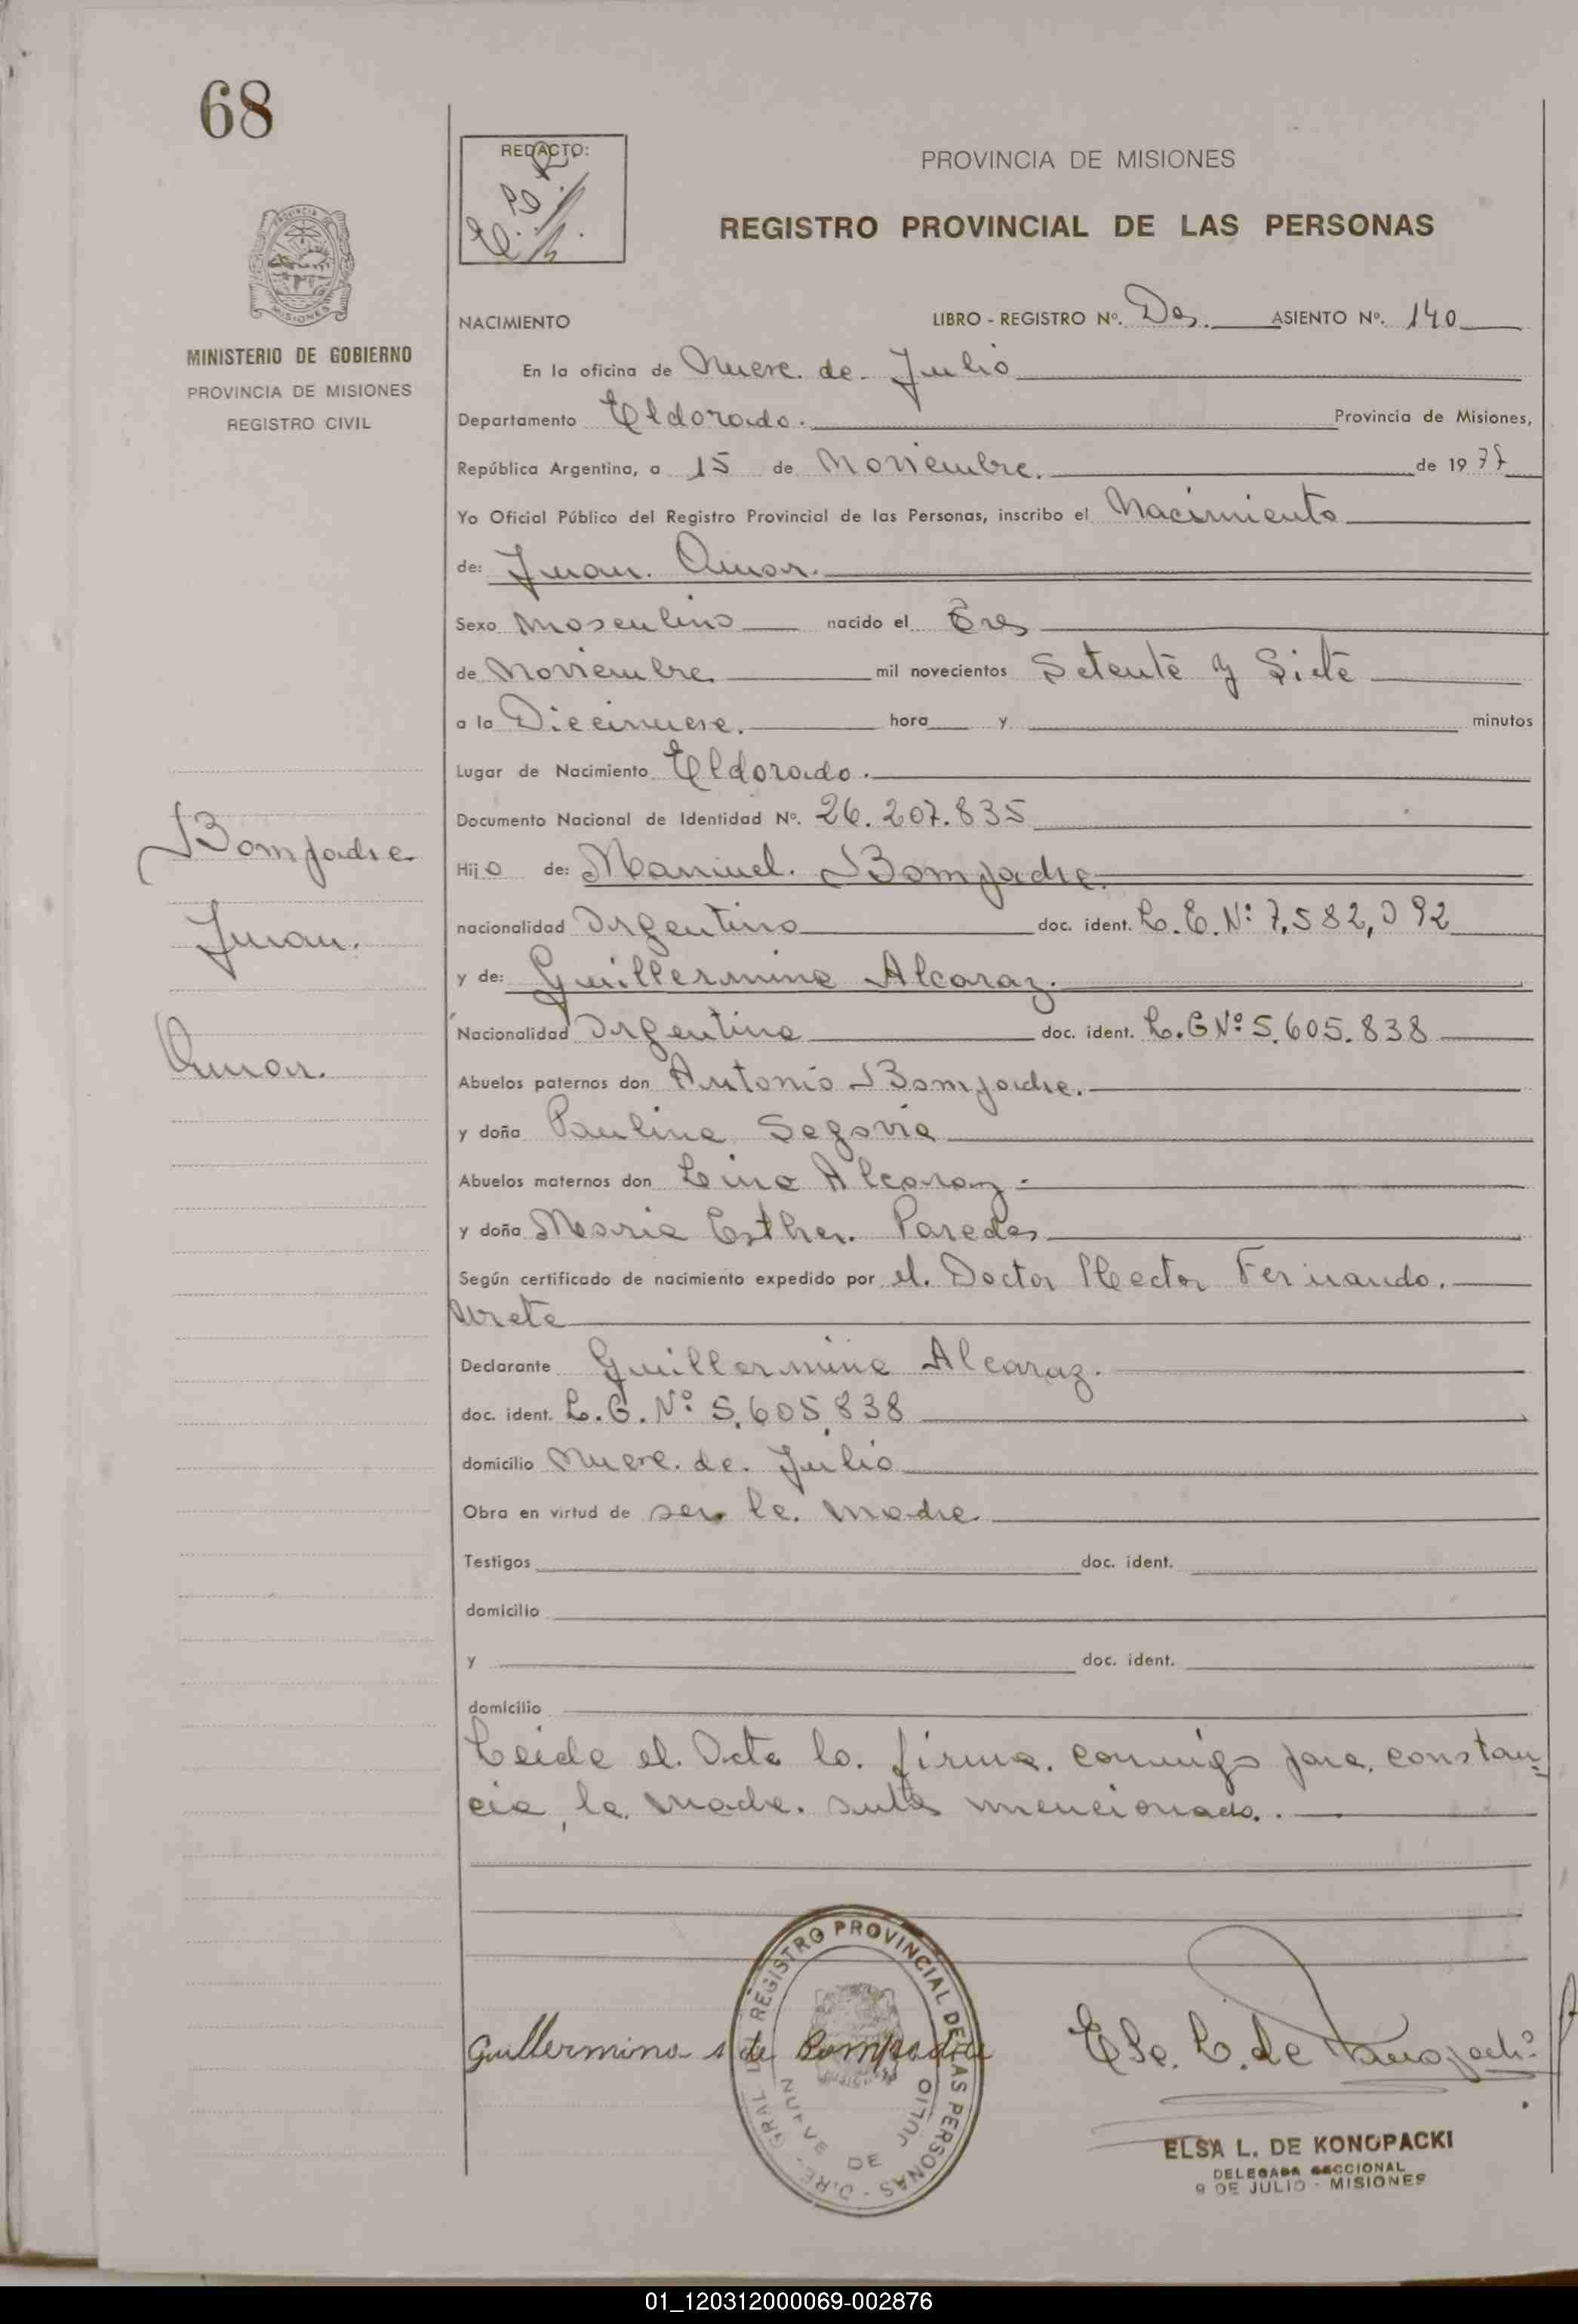 68
REDACTO:
PROVINCIA DE MISIONES
REGISTRO PROVINCIAL DE LAS PERSONAS
NACIMIENTO
LIBRO - REGISTRO Nº. Dos. ASIENTO Nº. 140
MINISTERIO DE GOBIERNO
PROVINCIA DE MISIONES
REGISTRO CIVIL
En la oficina de Nueve de Julio
Departamento Eldorado. Provincia de Misiones,
República Argentina, a 15 de Noviembre. de 1977
Yo Oficial Público del Registro Provincial de las Personas, inscribo el Nacimiento
de: Juan Omar.
Sexo Masculino nacido el Tres
de Noviembre mil novecientos Setenta y Siete
a la Diecinueve. hora y minutos
Lugar de Nacimiento Eldorado.
Documento Nacional de Identidad Nº. 26.207.835
Bompadre
Juan.
Omar.
Hijo de: Manuel. Bompadre.
nacionalidad Argentino doc. ident. L.E.Nº 7,582,092
y de: Guillermina Alcaraz.
Nacionalidad Argentina doc. ident. L.C Nº 5.605.838
Abuelos paternos don Antonio Bompadre.
y doña Paulina Segovia
Abuelos maternos don Lino Alcaraz
y doña Maria Esther. Paredes
Según certificado de nacimiento expedido por el. Doctor Hector Fernando.
Declarante Guillermina Alcaraz.
doc. ident. L.C. Nº 5.605.838
domicilio Nueve. de. Julio
Obra en virtud de ser la. madre
Testigos doc. ident.
domicilio
y doc. ident.
domicilio
Leida el. Acta la. firma. conmigo para. constan
cia, la. madre. antes mencionada.
Guillermina A de Bompadre
REGISTRO PROVINCIAL DE LAS PERSONAS
NUEVE DE JULIO
ELSA L. DE KONOPACKI
DELEGADA SECCIONAL
9 DE JULIO - MISIONES
01_120312000069-002876